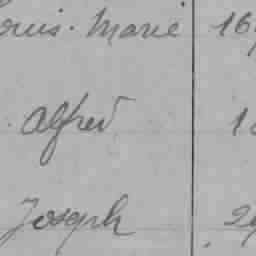 Louis. Marie 16
Alfred 1
Joseph 29